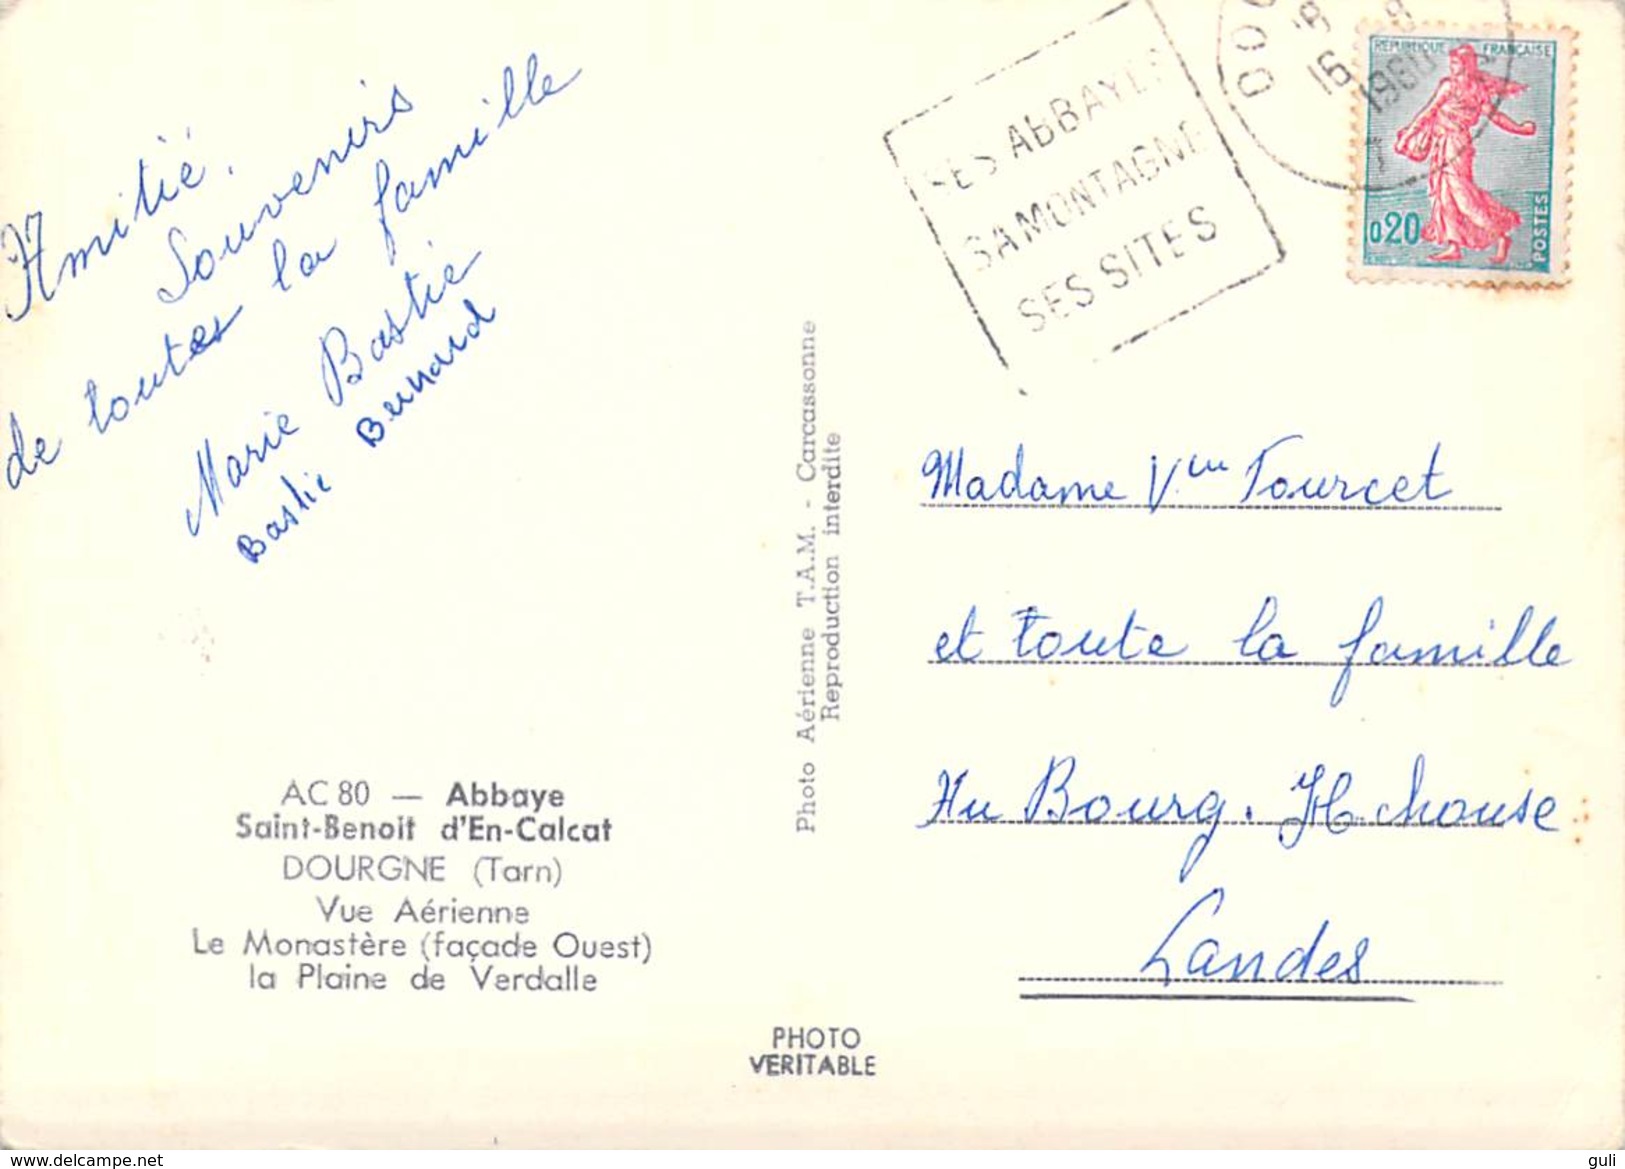 Amitié.
Souvenirs
de toutes la famille
Marie Bastié
Bastié Bernard
AC 80 — Abbaye
Saint-Benoit d'En-Calcat
DOURGNE (Tarn)
Vue Aérienne
Le Monastère (façade Ouest)
la Plaine de Verdalle
Photo Aérienne T.A.M. - Carcassonne
Reproduction interdite
PHOTO
VERITABLE
SES ABBAYES
SA MONTAGNE
SES SITES
16
1960
REPUBLIQUE FRANÇAISE
0,20
POSTES
Madame Vve Fourcet
et toute la famille
Au Bourg.
Landes
www.delcampe.net
guli